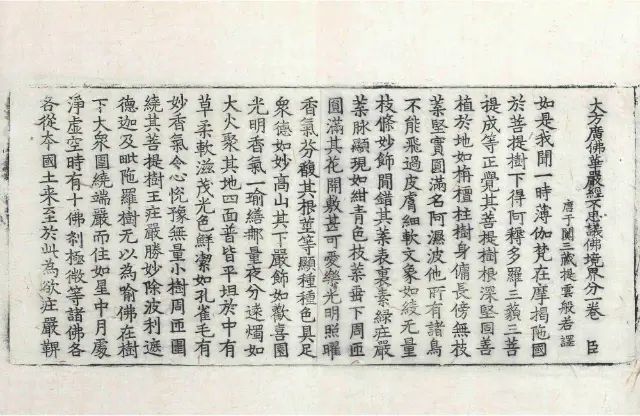 大方廣佛華嚴經不思議佛境界分一卷 臣
唐于闐三藏提雲般若譯
如是我聞一時薄伽梵在摩揭陁國
於菩提樹下得阿耨多羅三藐三菩
提成等正覺其菩提樹根深堅固善
植於地如栴檀柱樹身傭長傍無枝
葉堅實圓滿名阿濕波他所有諸鳥
不能飛過皮膚細軟文象如綾无量
枝條妙飾間錯其葉表裏素綠莊嚴
葉脉顯現如紺青色枝葉垂下周匝
圓滿其花開敷甚可愛樂光明照曜
香氣芬馥其根莖等顯種種色具足
衆德如妙高山其干嚴飾如歡喜園
光明香氣一瑜繕那量夜分遠燭如
大火聚其地四面普皆平坦於中有
草柔軟滋茂光色鮮潔如孔雀毛有
妙香氣令心悅豫無量小樹周匝圍
繞其菩提樹王莊嚴勝妙除波利遮
德迦及毗陁羅樹无以為喻佛在樹
下大衆圍繞端嚴而住如星中月處
淨虛空時有十佛剎極微等諸佛各
各從本國土来至於此為欲莊嚴鞞